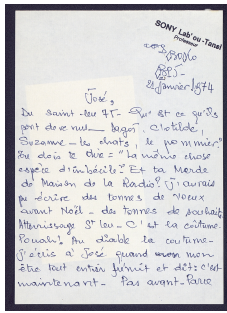 SONY Lab'ou-Tansi
Professeur
BOKO
21 Janvier 1974
José,
Du Saint-leu 75- Qu'est ce qu'ils
sont devenus Clotilde,
Suzanne - les chats, le pommier?
Tu dois te dire = "La même chose
espèce d'imbécile? Et ta Merde
de Maison de la Radio? J'aurais
pu écrire des tonnes de voeux
avant Noël - des tonnes de souhaits
St leu - C'est la coutume.
Pouah! Au diable la coutume-
j'écris à José quand mon
être tout entier frémit et dit: c'est
maintenant - Pas avant - Parce